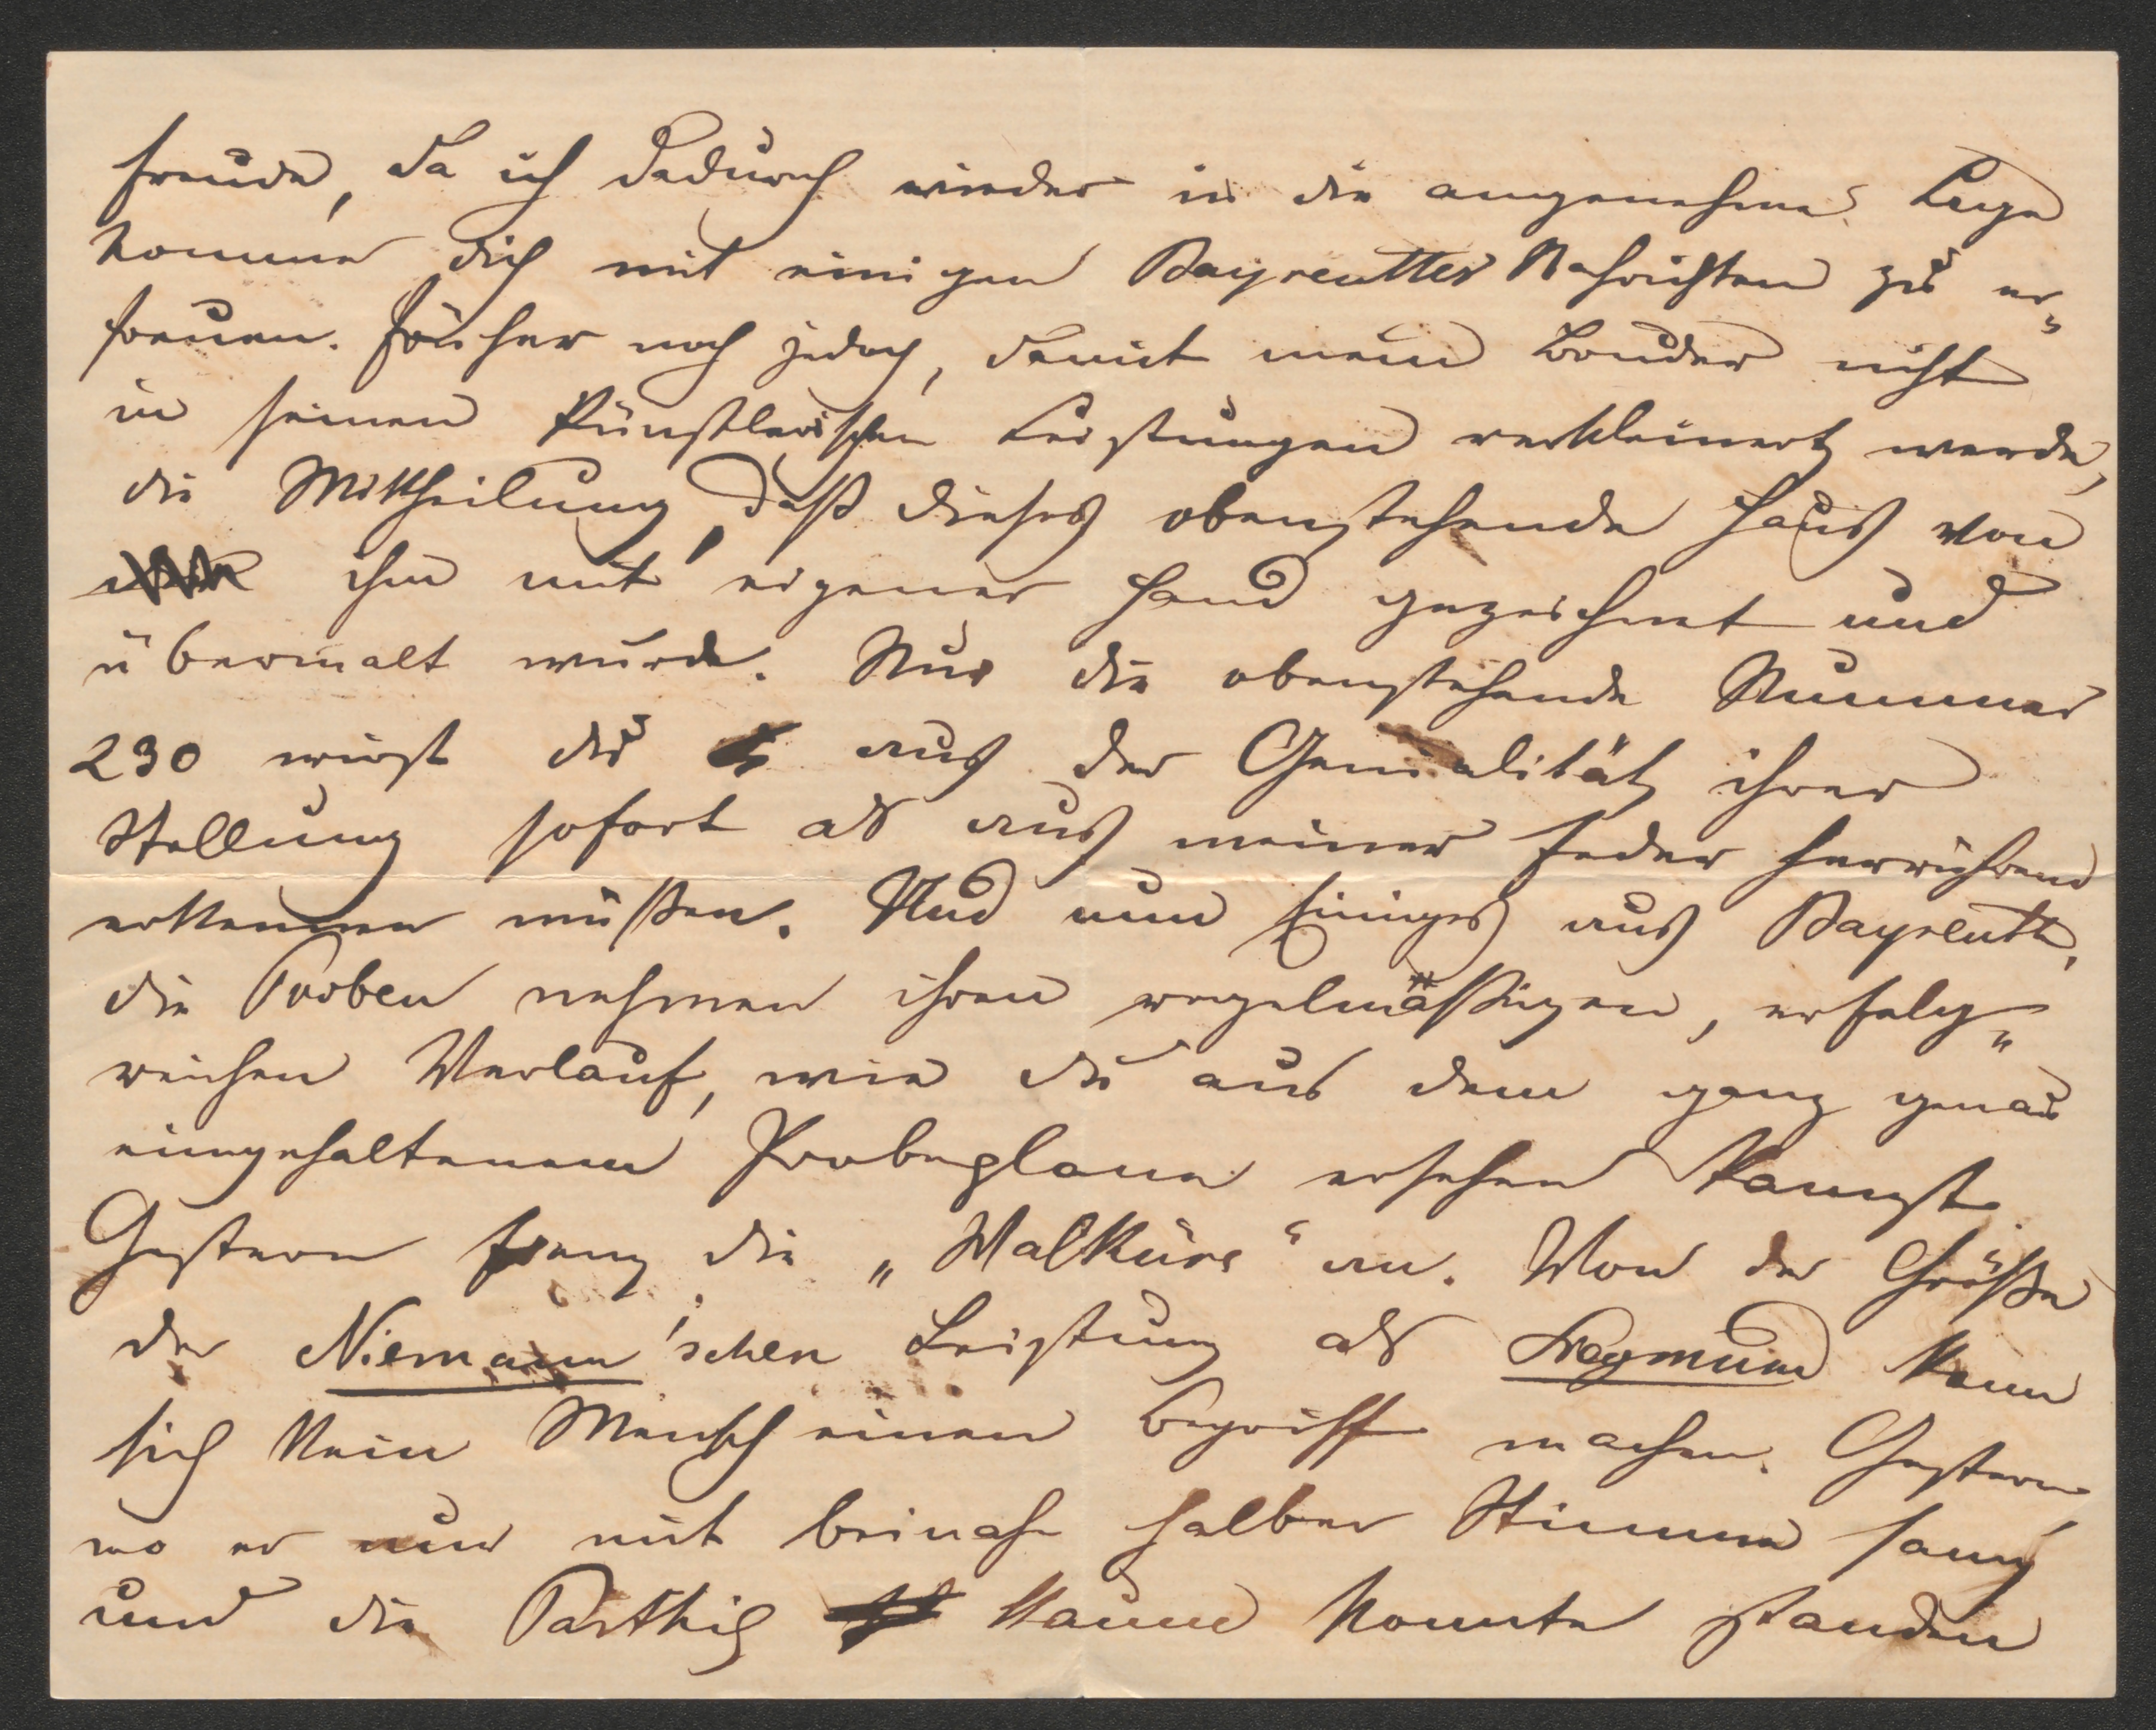 freude, da ich dadurch wieder in die angenehme Lage
komme dich mit einigen Bayreuther Nachrichten zu er„
freuen. Früher noch jedoch, damit mein Bruder nicht
in seinen künstlerischen Leistungen verkleinert werde,
die Mittheilung, daß dieses obenstehende Haus von
ihm mit eigener Hand gezeichnet und
übermalt wurde. Nur die obenstehende Nummer
230 wirst du aus der Genialität ihrer
Stellung sofort als aus meiner Feder herrührend
erkennen müßen. Und nun Einiges aus Bayreuth,
die Proben nehmen ihren regelmäßigen, erfolg„
reichen Verlauf, wie du aus dem ganz genau
eingehaltenem Probeplane ersehen kannst.
Gestern fieng die „Walküre“ an. Von der Größe
der Niemann'schen Leistung als Siegmund kann
sich kein Mensch einen Begriff machen. Gestern,
wo er nur mit beinahe halber Stimme sang
und die Parthie kaum konnte standen